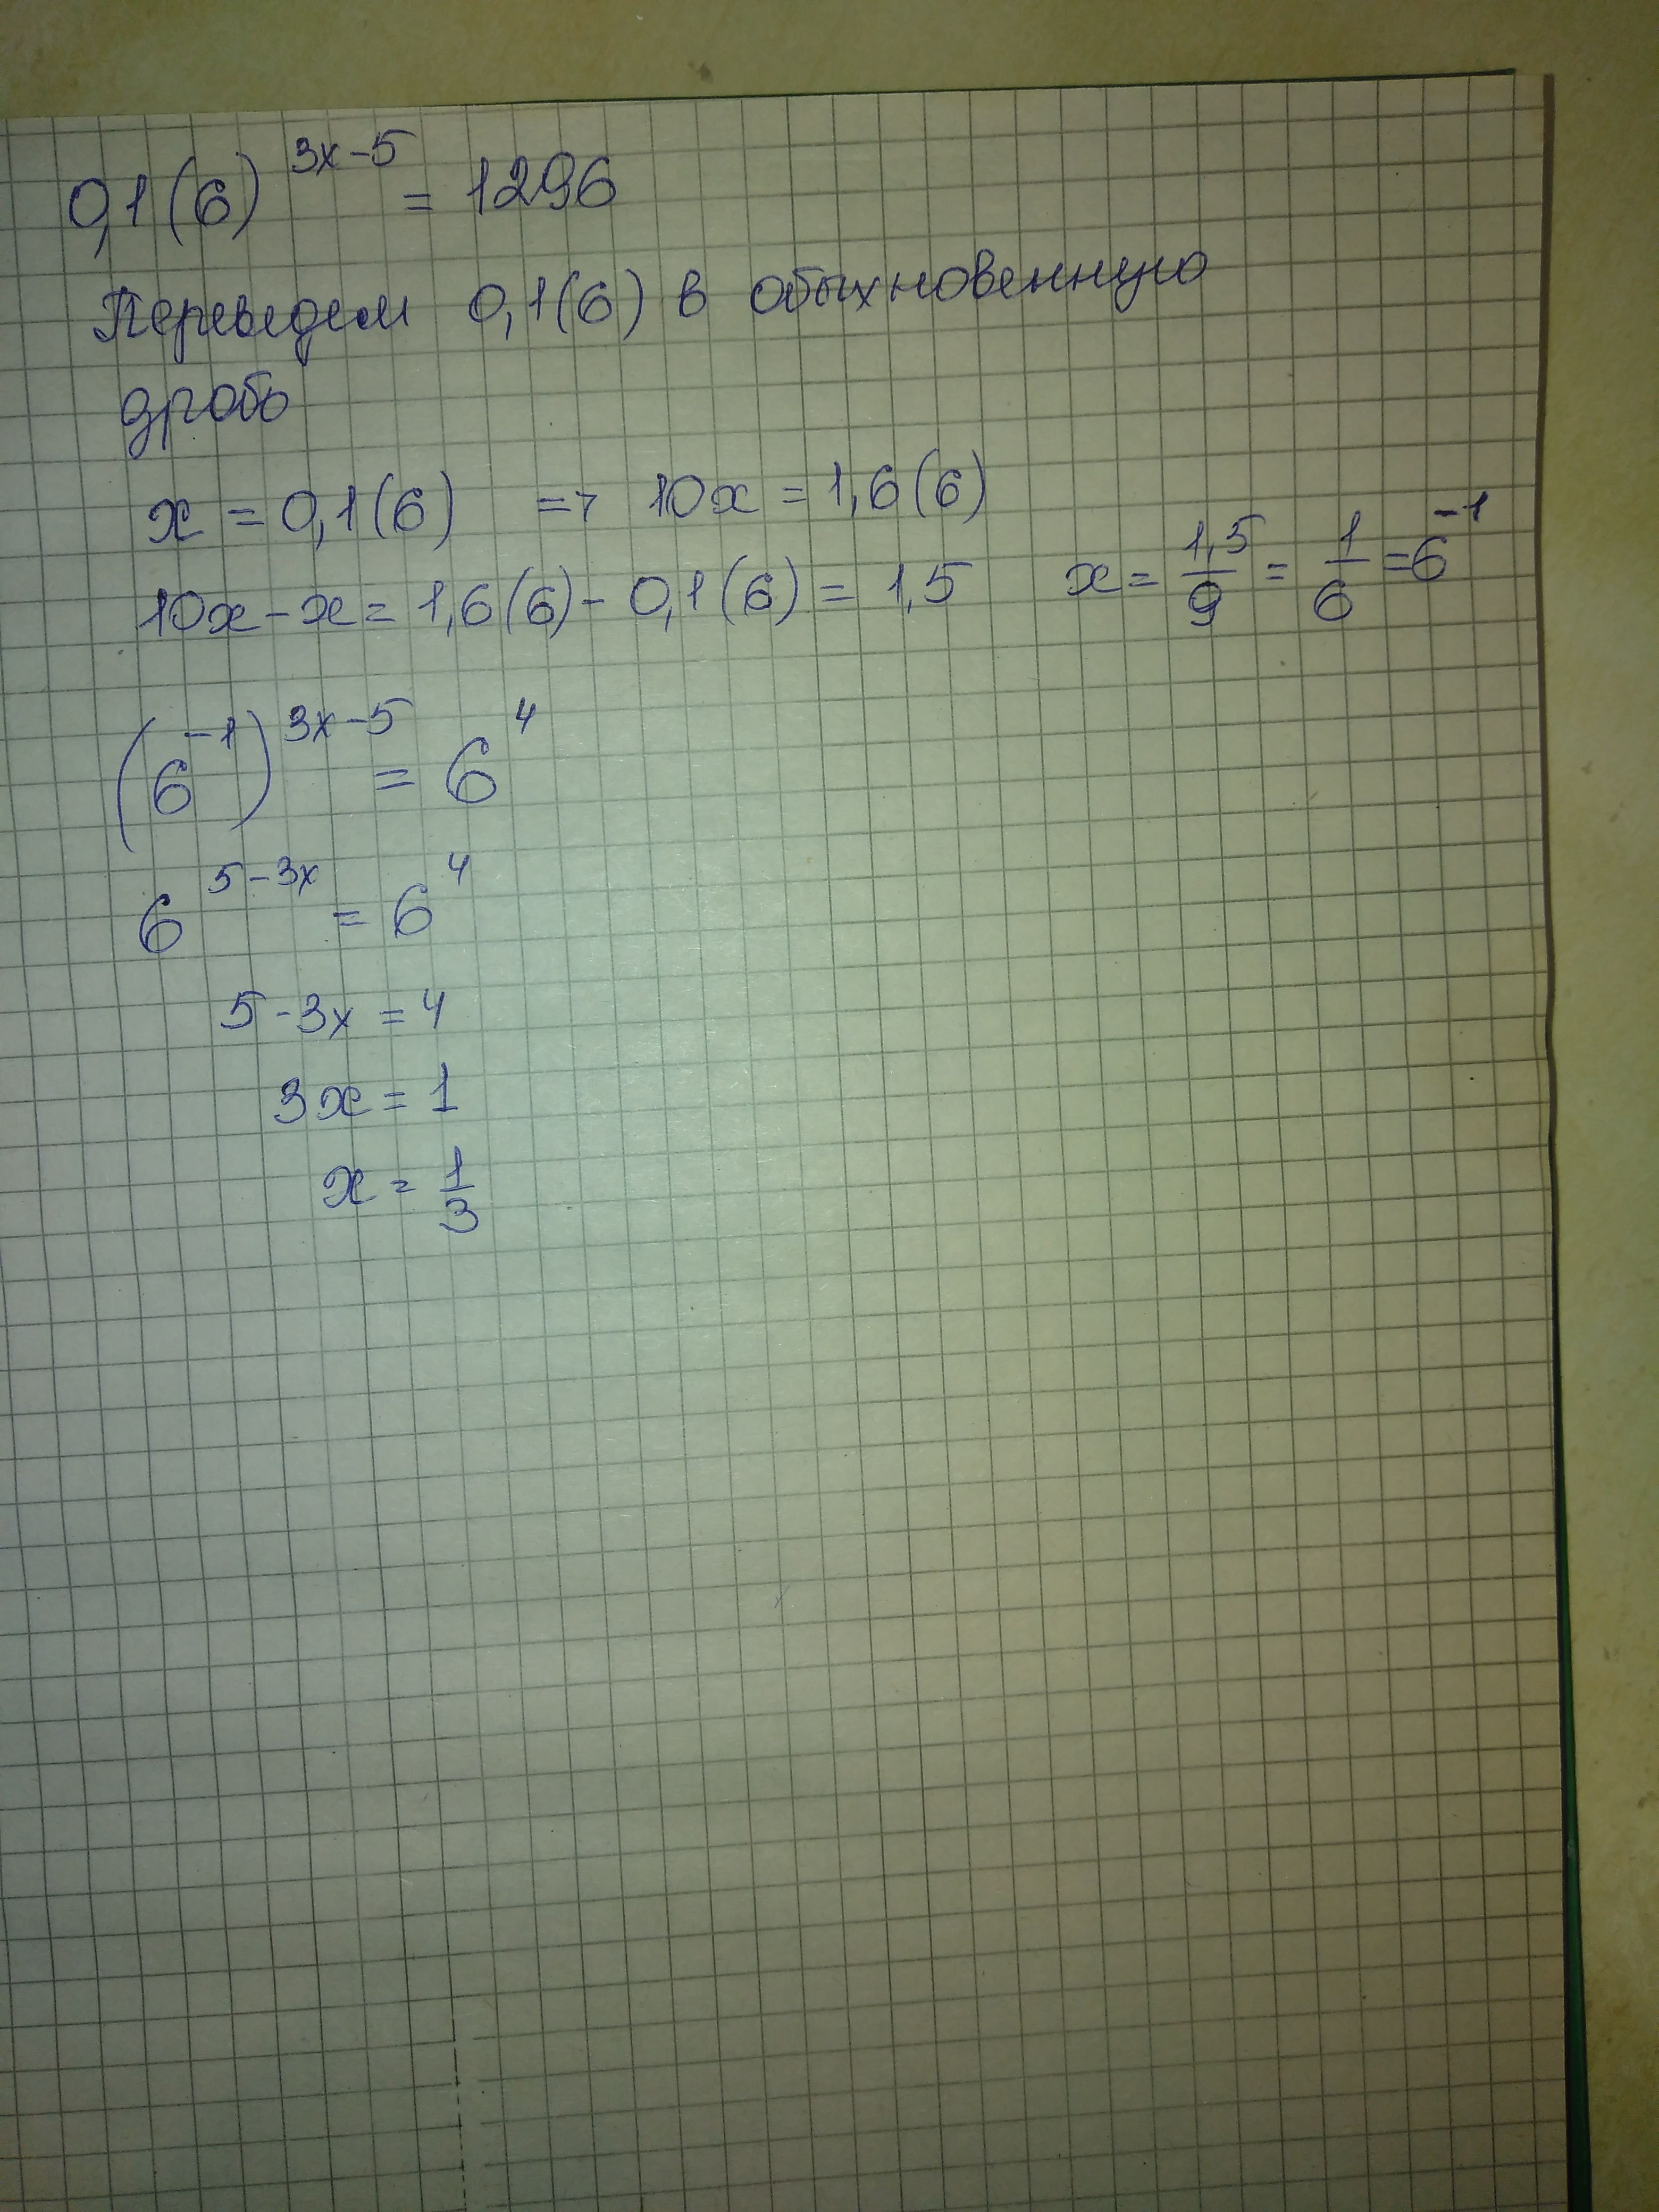 0,1(6)^{3x-5} = 1296
Переведем 0,1(6) в обыкновенную
дробь
x = 0,1(6) => 10x = 1,6(6)
10x - x = 1,6(6) - 0,1(6) = 1,5 x = \frac{1,5}{9} = \frac{1}{6} = 6^{-1}
(6^{-1})^{3x-5} = 6^4
6^{5-3x} = 6^4
5 - 3x = 4
3x = 1
x = \frac{1}{3}